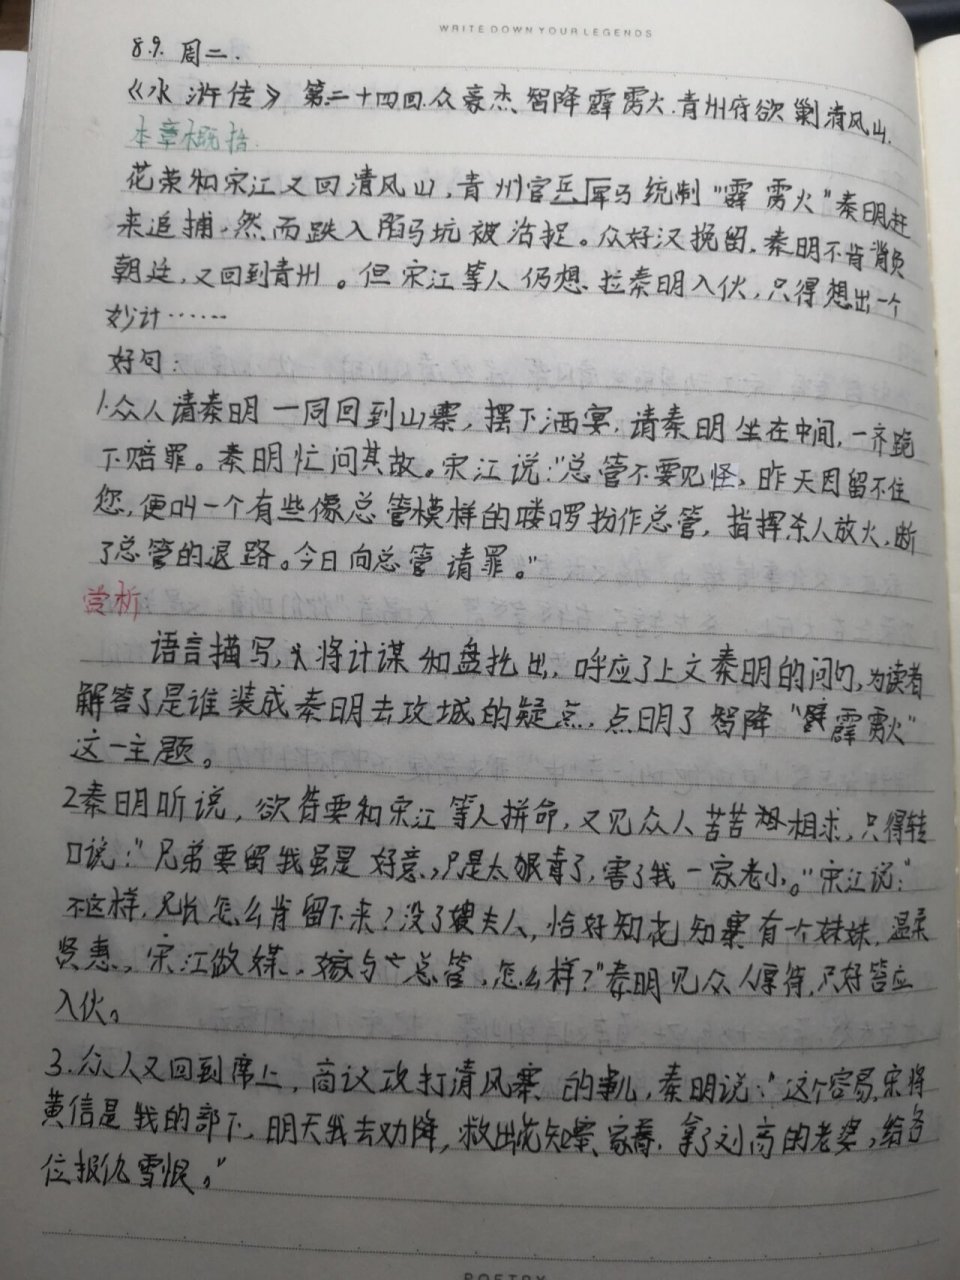 WRITE DOWN YOUR LEGENDS
8.9. 周二.
《水浒传》 第二十四回.众豪杰智降霹雳火.青州府欲剿清风山.
本章概括.
花荣和宋江又回清风山,青州官兵马统制"霹雳火"秦明赶
来追捕.然而跌入陷马坑被活捉。众好汉挽留.秦明不肯背负
朝廷,又回到青州。但宋江等人仍想拉秦明入伙,只得想出一个
妙计……
好句:
1.众人请秦明一同回到山寨,摆下酒宴,请秦明坐在中间,一齐跪
下赔罪。秦明忙问其故。宋江说:"总管不要见怪、昨天因留不住
您,便叫一个有些像总管模样的喽啰扮作总管,指挥杀人放火,断
了总管的退路。今日向总管请罪。"
赏析
语言描写,将计谋和盘托出,呼应了上文秦明的问句,为读者
解答了是谁装成秦明去攻城的疑点.点明了智降"霹雳火"
这一主题。
2秦明听说,欲待要和宋江等人拼命,又见众人苦苦相求,只得转
口说:"兄弟要留我虽是好意,只是太狠毒了,害了我一家老小。"宋江说:"
不这样,兄长怎么肯留下来?没了嫂夫人,恰好知花知寨有一个妹妹,温柔
贤惠,宋江做媒.嫁与总管,怎么样?"秦明见众人厚待,只好答应
入伙。
3.众人又回到席上,商议攻打清风寨的事儿,秦明说:"这个容易,宋将
黄信是我的部下,明天我去劝降,救出花知寨家眷.拿了刘高的老婆,给各
位报仇雪恨。"
POETRY